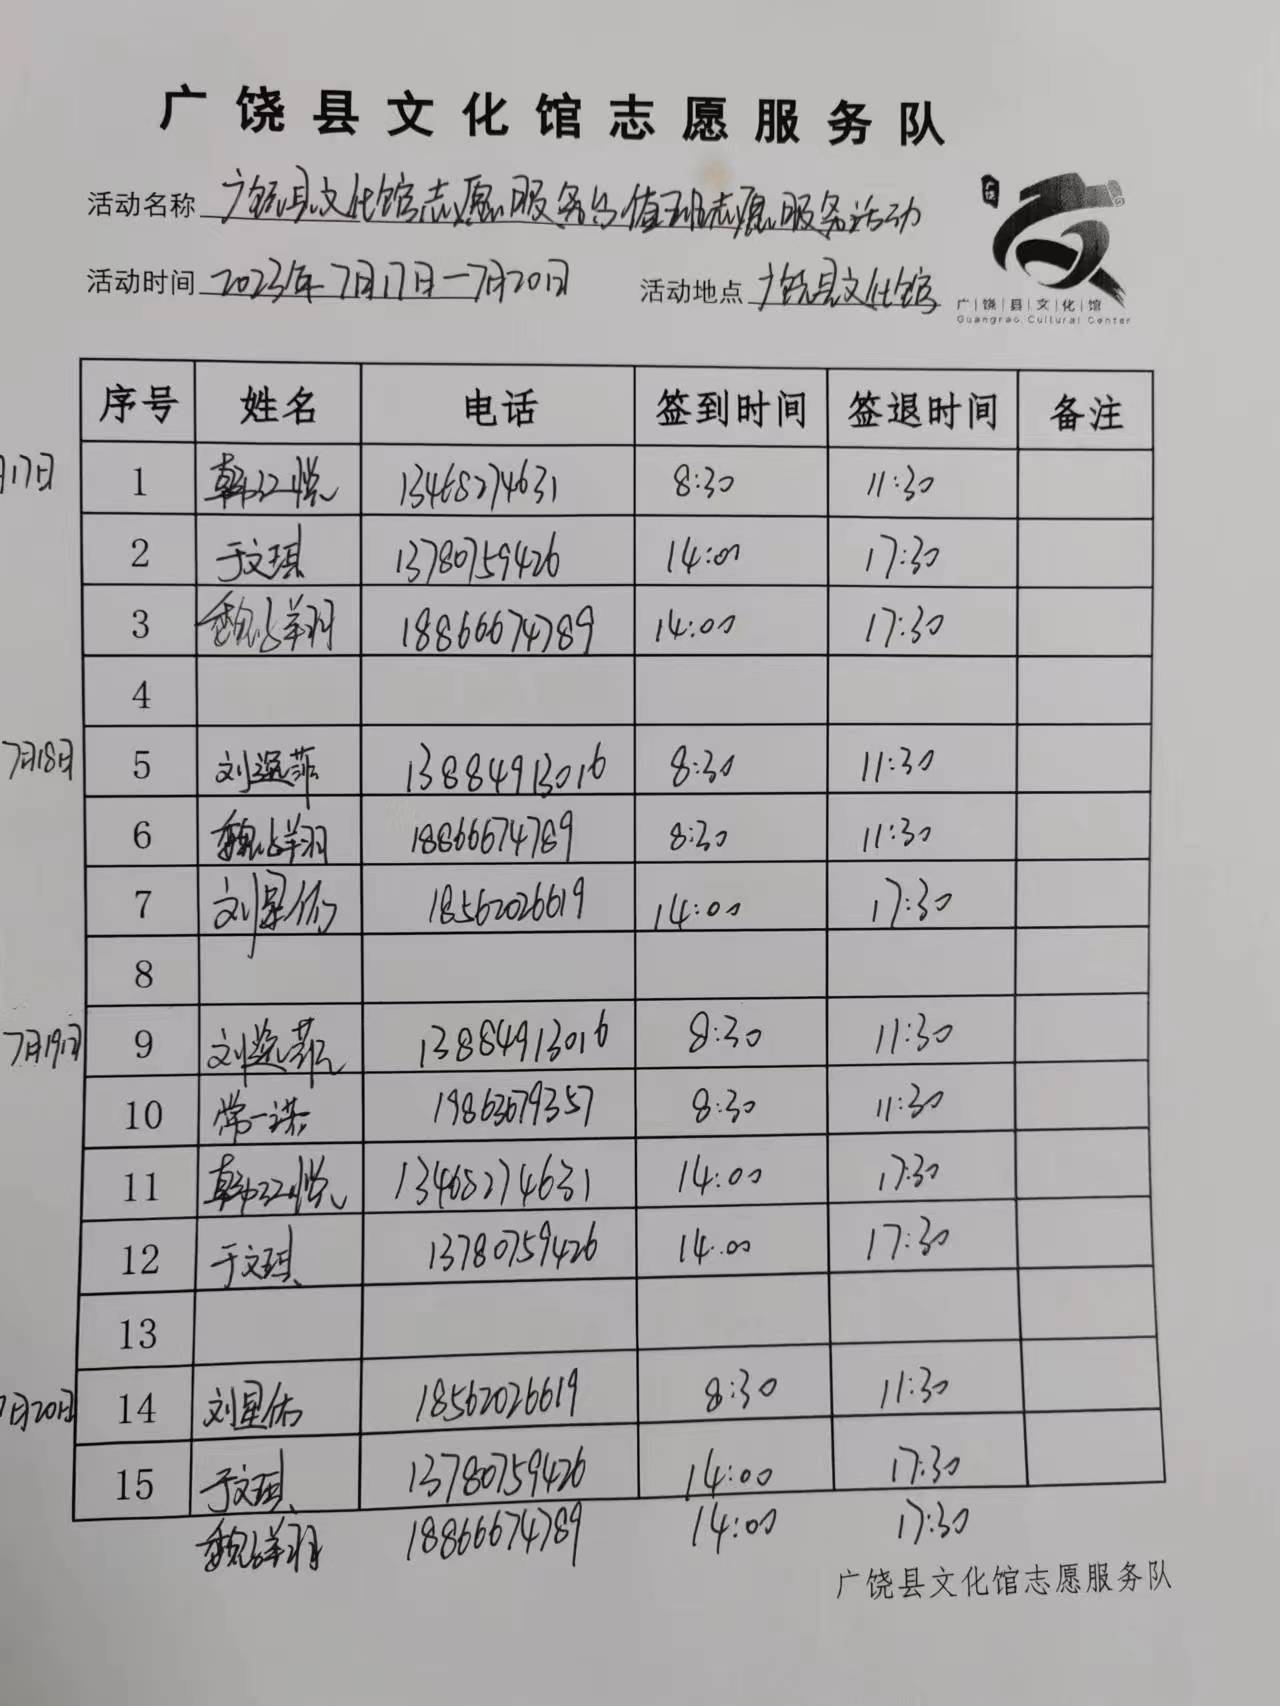 广饶县文化馆志愿服务队
活动名称 广饶县文化馆志愿服务台值班志愿服务活动
活动时间 2023年7月17日—7月20日 活动地点 广饶县文化馆
广饶县文化馆
Guangrao Cultural Center
序号 姓名 电话 签到时间 签退时间 备注
月17日 1 韩江悦 13468274631 8:30 11:30
2 于文琪 13780759426 14:00 17:30
3 魏祥羽 18866674789 14:00 17:30
4
7月18日 5 刘逸菲 13884913016 8:30 11:30
6 魏祥羽 18866674789 8:30 11:30
7 刘星佑 18562026619 14:00 17:30
8
7月19日 9 刘逸菲 13884913016 8:30 11:30
10 常一诺 19863679357 8:30 11:30
11 韩江悦 13468274631 14:00 17:30
12 于文琪 13780759426 14:00 17:30
13
7月20日 14 刘星佑 18562026619 8:30 11:30
15 于文琪 13780759426 14:00 17:30
魏祥羽 18866674789 14:00 17:30
广饶县文化馆志愿服务队